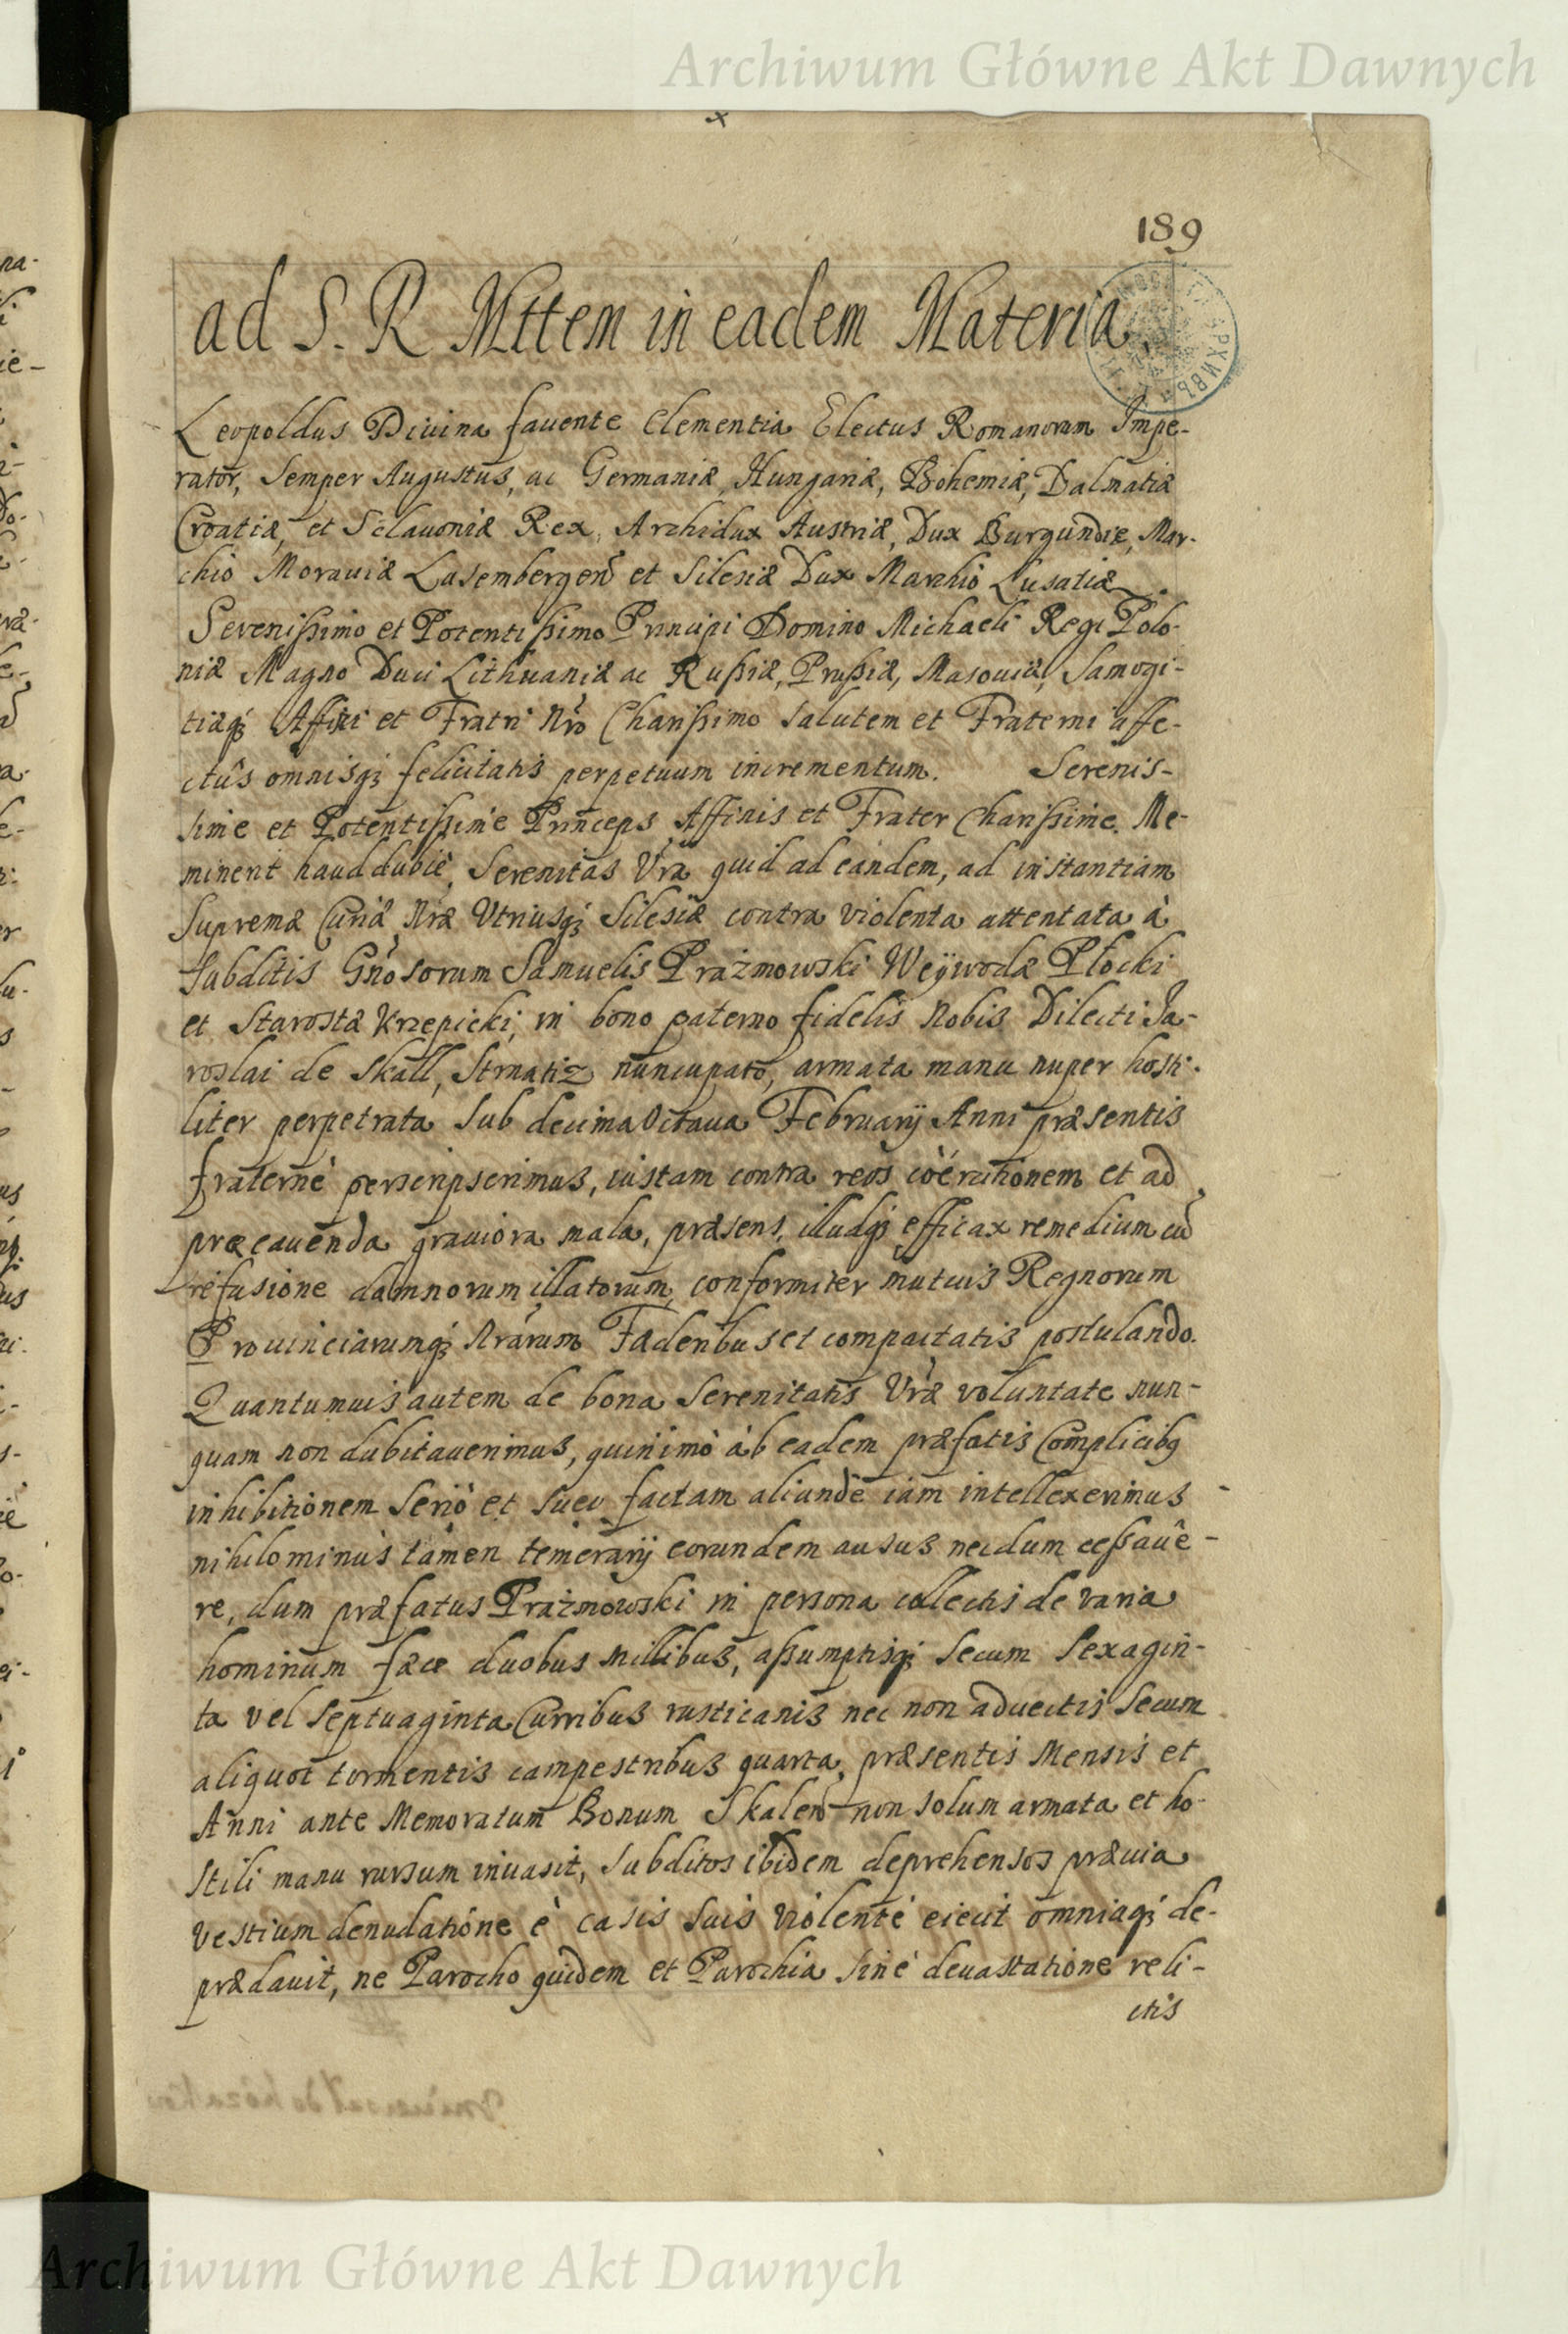 Archiwum Główne Akt Dawnych
189
ad S. R Mttem in eadem Materia.
Leopoldus Diuina fauente Clementia Electus Romanorum Impe-
rator, Semper Augustus, ac Germaniæ, Hungariæ, Bohemiæ, Dalmatiæ
Croatiæ, et Sclauoniæ Rex, Archidux Austriæ, Dux Burgundiæ, Mar-
chio Morauiæ Lasembergen et Silesiæ Dux Marchio Lusatiæ.
Serenißimo et Potentißimo Principi Domino Michaeli Regi Polo-
niæ Magno Duci Lithuaniæ ac Rußiæ, Prußiæ, Masouiæ, Samogi-
tiæq; Affini et Fratri Nro Charißimo salutem et Fraterni affe-
ctûs omnisq; felicitatis perpetuum incrementum. Serenis-
sime et Potentißime Princeps Affinis et Frater Charißime. Me-
minerit haud dubiè, Serenitas Vra quid ad eandem, ad instantiam
Supremæ Curiæ Nræ Vtriusq; Silesiæ contra violenta attentata à
subditis Gnosorum Samuelis Prażmowski Weÿwodæ Płocki
et Starostæ Krzepicki, in bono paterno fidelis Nobis Dilecti Ja-
roslai de Skall, Strnatiz nuncupato, armata manu nuper hosti-
liter perpetrata sub decima Octaua Februarÿ Anni præsentis
fraternè perscripserimus, iustam contra reos coërcitionem et ad
præcauenda grauiora mala, præsens, illudq; efficax remedium cũ
refusione damnorum illatorum, conformiter mutuis Regnorum
Prouinciarumq; Nrarum Fæderibus et compactatis postulando.
Quantumuis autem de bona Serenitatis Vræ voluntate nun-
quam non dubitauerimus, quinimò ab eadem præfatis Complicibq
inhibitionem Seriò et factam aliundè iam intellexerimus
nihilominùs tamen temerarÿ eorundem ausus necdum ceßauê-
re, dum præfatus Prażmowski in persona collectis de varia
hominum fæce duobus millibus, aßumptisq; secum sexagin-
ta vel septuaginta Curribus rusticanis nec non aduectis secum
aliquot tormentis campestribus quarta, præsentis Mensis et
Anni ante Memoratum Bonum Skalen non solum armata et ho-
stili manu rursum inuasit, subditos ibidem deprehensos præuia
vestium denudatione è casis suis violentè eiecit omniaq; de-
prædauit, ne Parocho quidem et Parochia sinè deuastatione reli-
ctis
Archiwum Główne Akt Dawnych